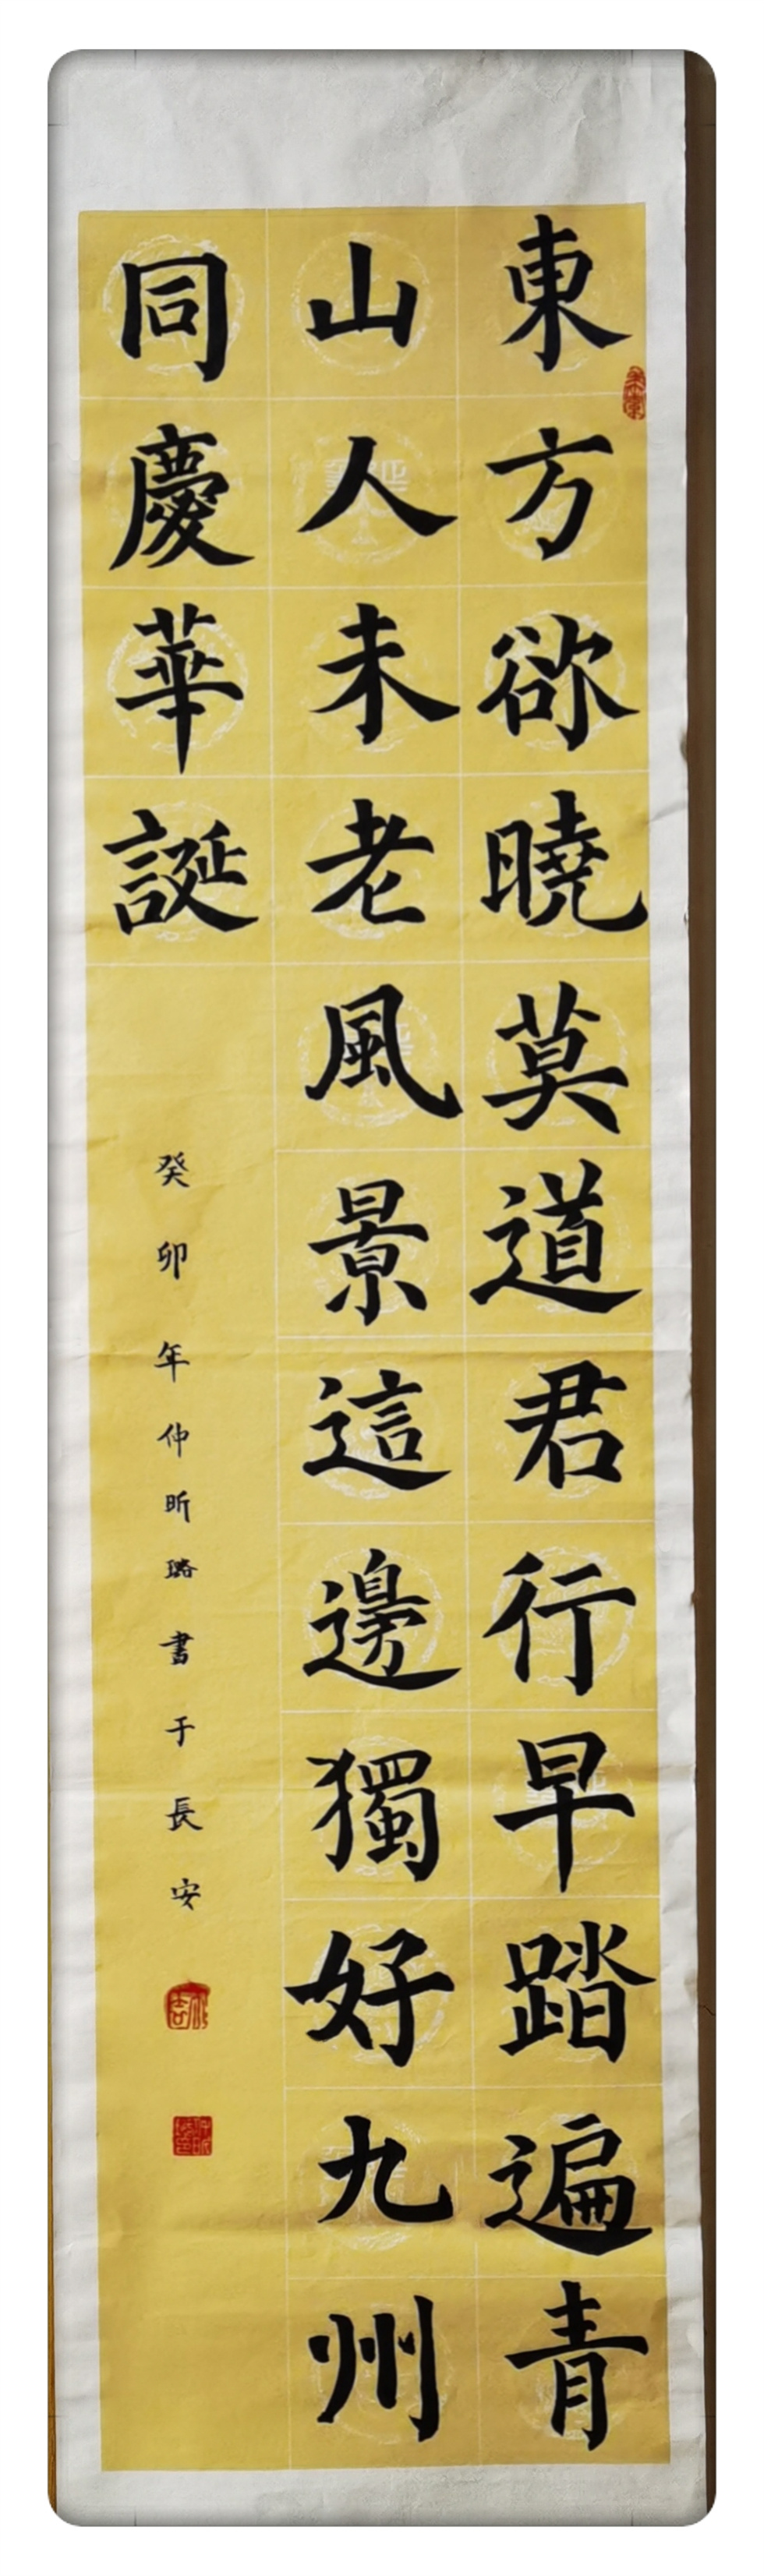 東方欲曉莫道君行早踏遍青
山人未老風景這邊獨好九州
同慶華誕
癸卯年仲昕璐書于長安